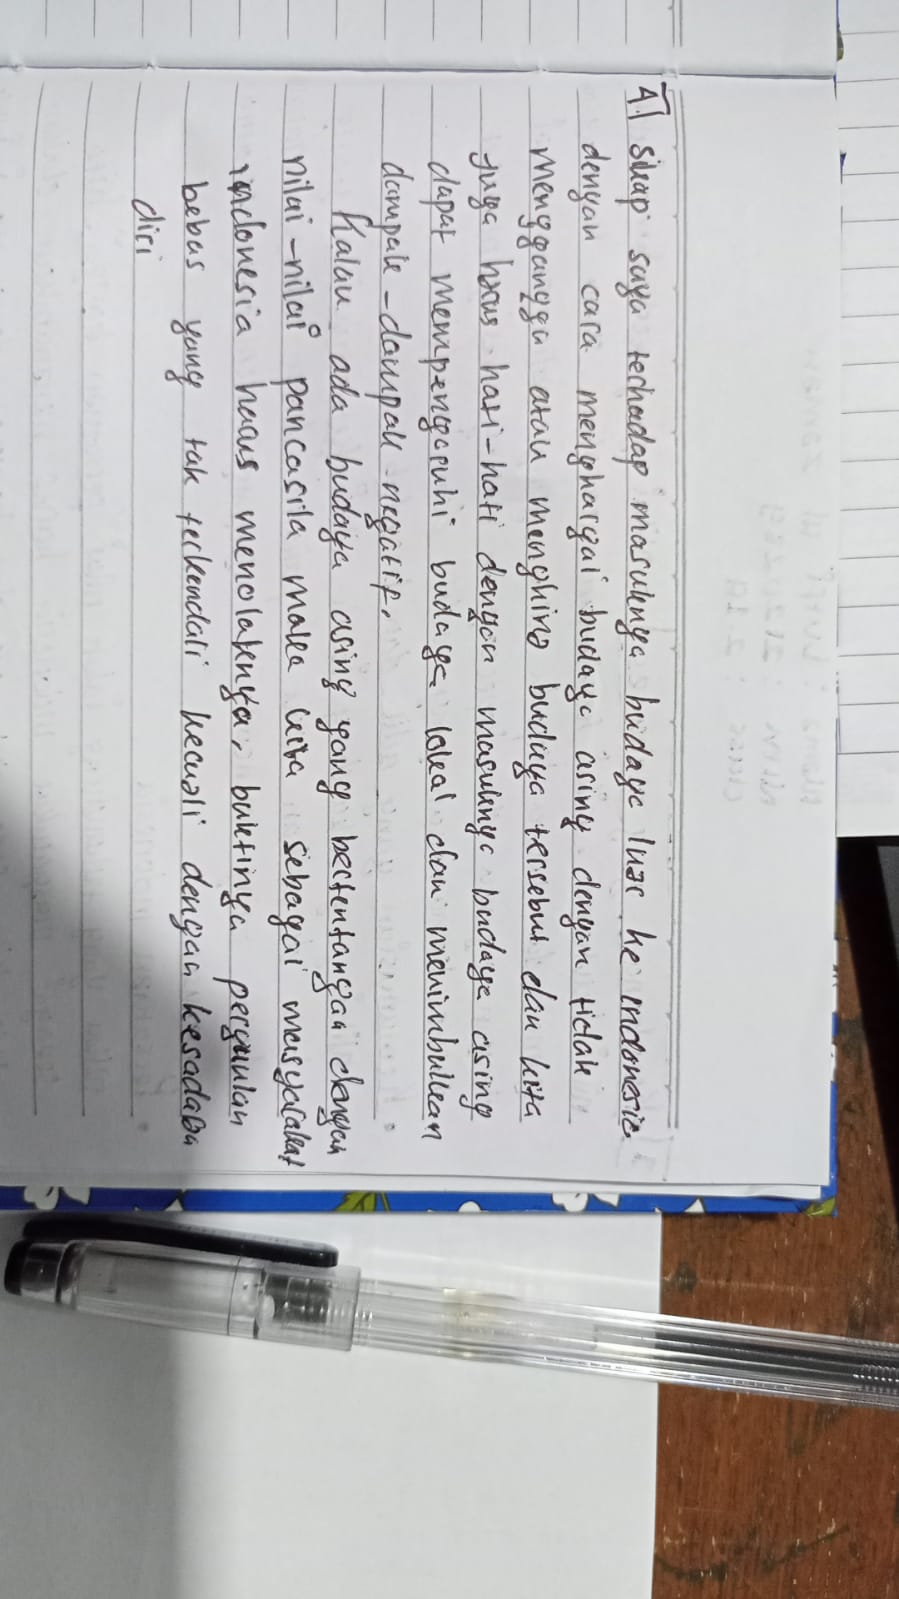 4.) Sikap saya terhadap masuknya budaya luar ke indonesia
dengan cara menghargai budaya asing dengan tidak
menggangga atau menghina budaya tersebut dan kita
juga harus hati-hati dengan masuknya budaya asing
dapat mempengaruhi budaya lokal dan menimbulkan
dampak-dampak negatif.
Kalau ada budaya asing yang bertentangan dengan
nilai-nilai pancasila maka kita sebagai masyarakat
indonesia harus menolaknya, buktinya pergaulan
bebas yang tak terkendali kecuali dengan kesadaran
diri